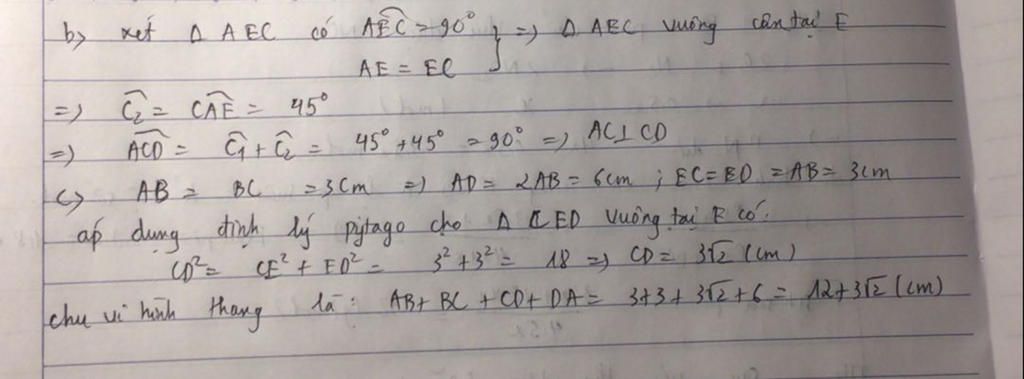 b) xét Δ AEC có AÊC = 90° } => Δ AEC vuông cân tại E
AE = EC
=> Ĉ₂ = CÂE = 45°
=> AĈD = Ĉ₁ + Ĉ₂ = 45° + 45° = 90° => AC ⊥ CD
c) AB = BC = 3cm => AD = 2AB = 6cm ; EC = ED = AB = 3cm
áp dụng định lý pytago cho Δ CED vuông tại E có:
CD² = CE² + ED² = 3² + 3² = 18 => CD = 3√2 (cm)
chu vi hình thang là: AB + BC + CD + DA = 3+3+3√2+6 = 12+3√2 (cm)